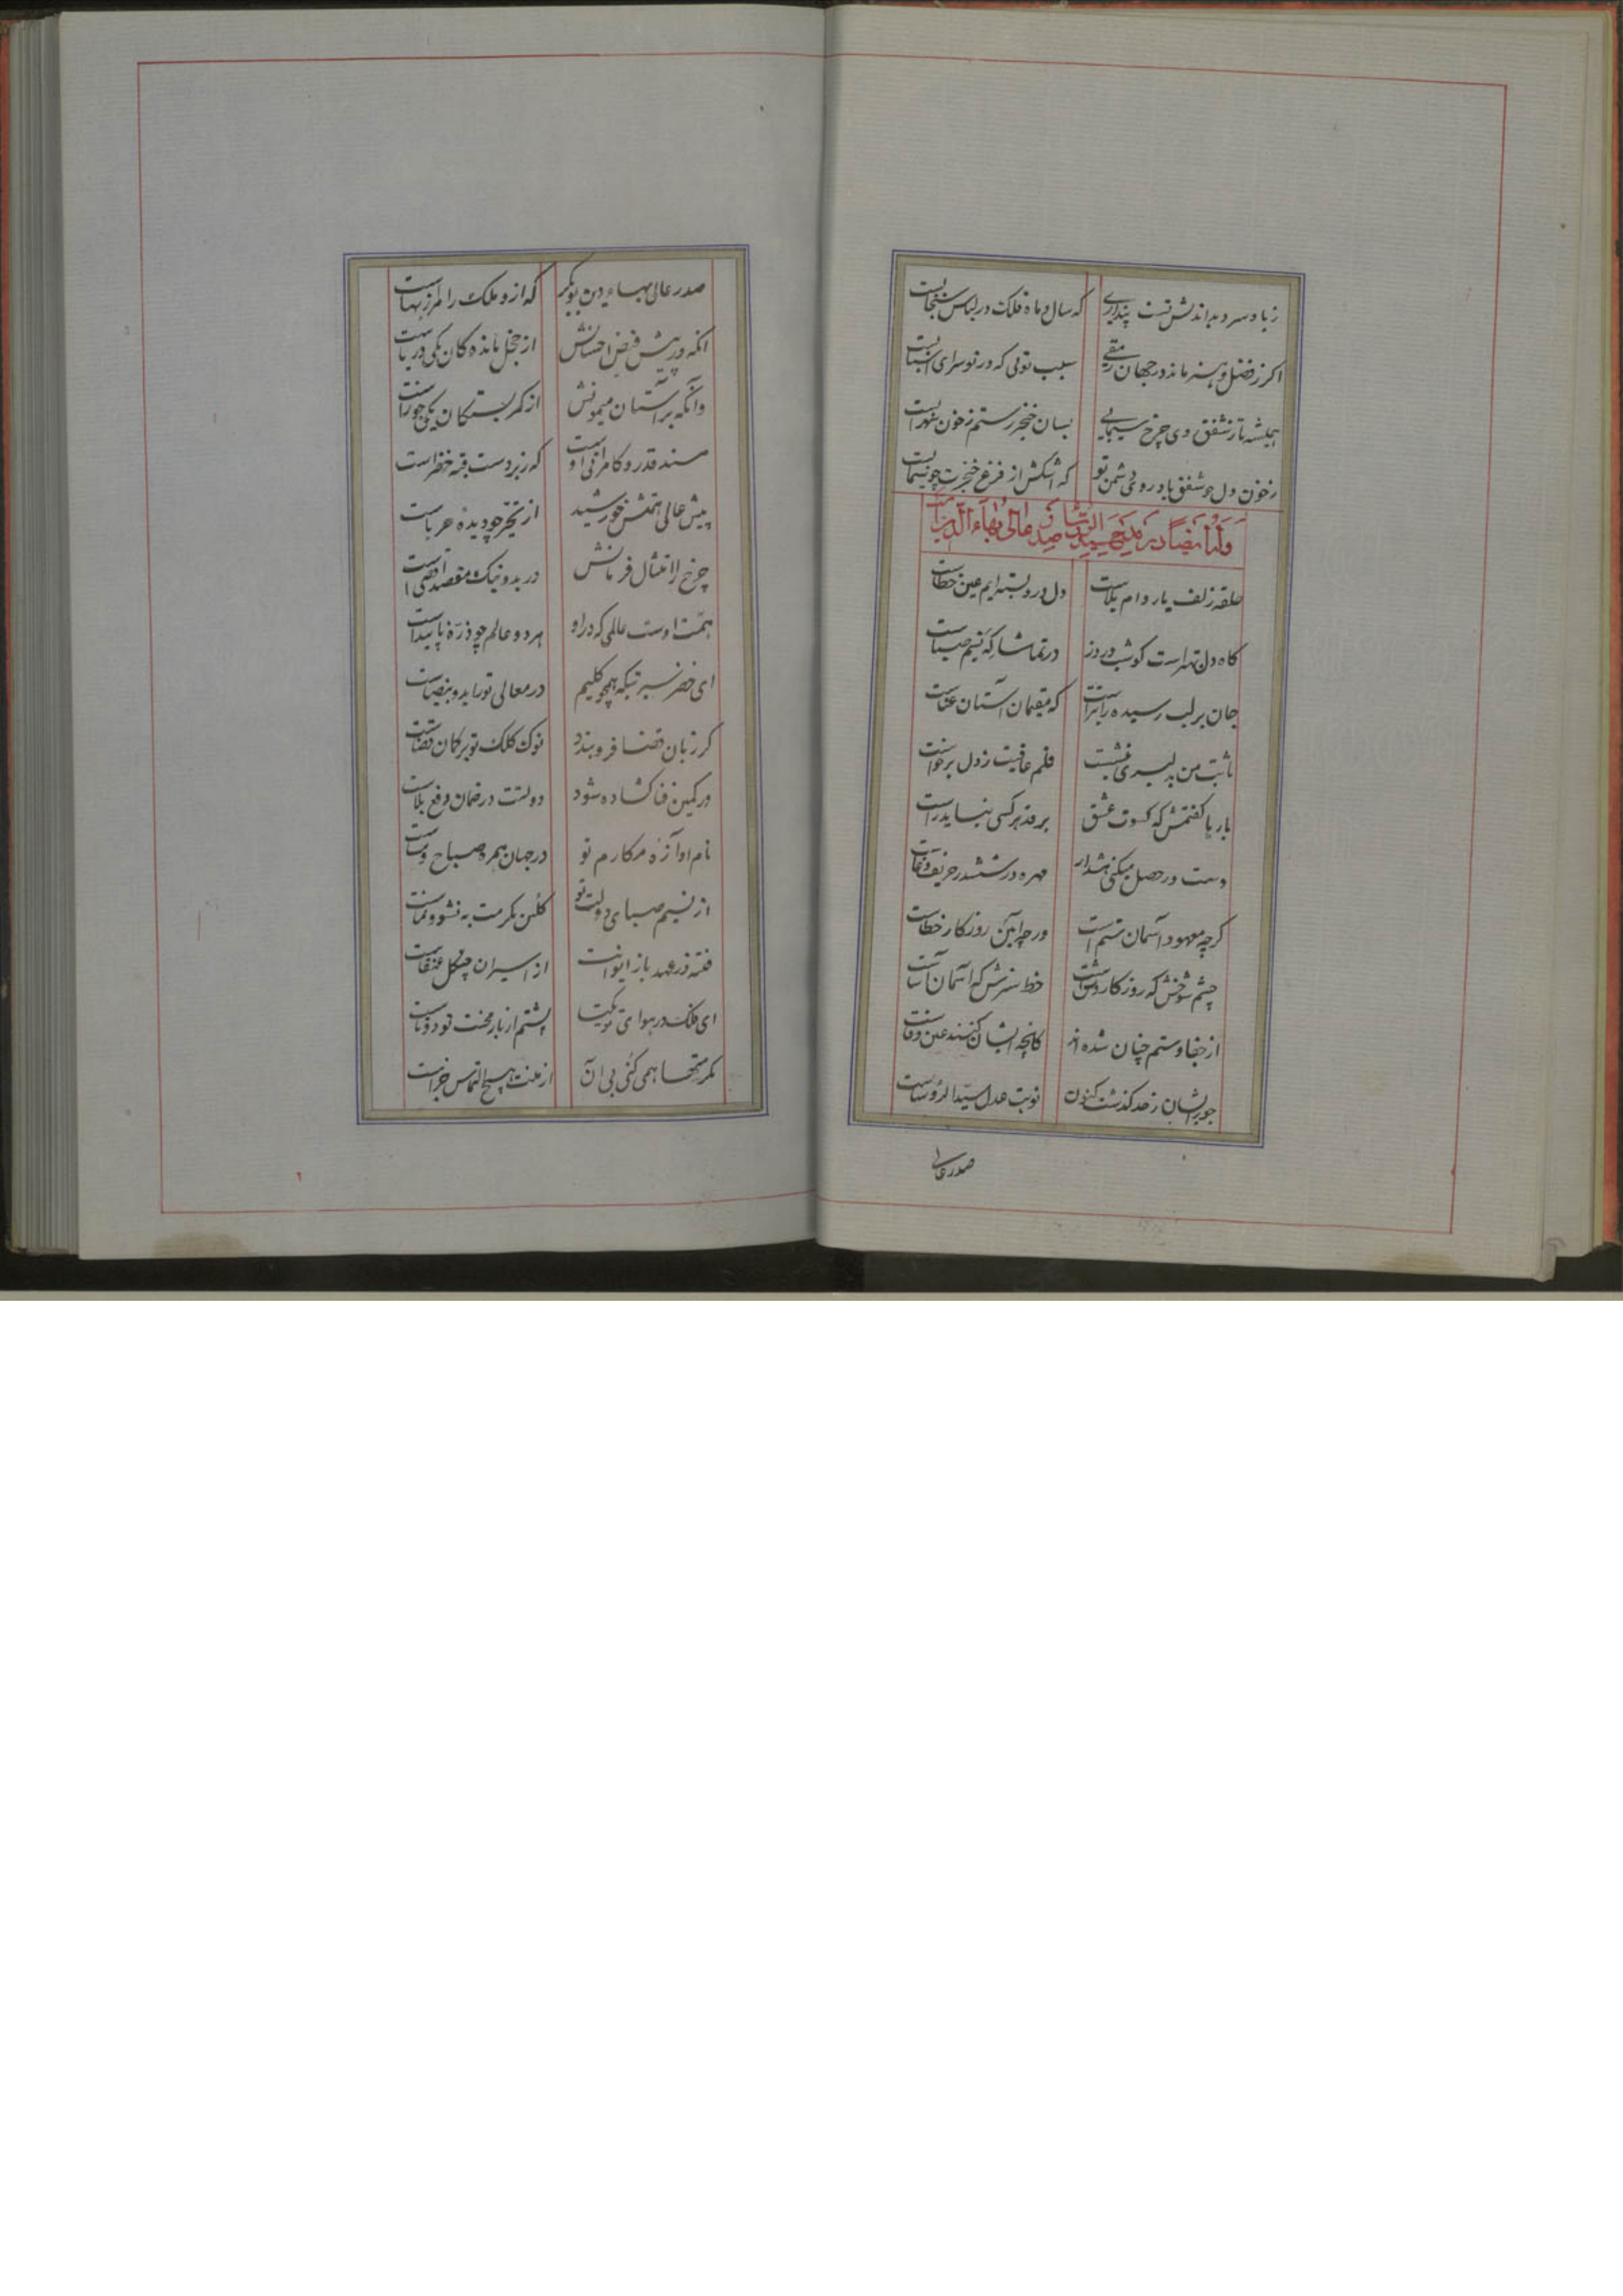 ز باد سرد بداندیش تست پنداری که سال و ماه فلک در لباس سنجابست
اگر ز فضل و هنر ماند در جهان رمقی سبب تویی که در تو سرای
همیشه تا ز شفق دی چرخ سیمابی بسان خنجر رستم ز خون سهرابست
ز خون دل چو شفق باد روی دشمن تو که اشکش از فزع خنجرت چو سیمابست
وله ایضا در مدیحه سید الرؤسا صدر عالی بهاء الدین
حلقه زلف یار دام بلاست دل درو بسته‌ایم عین خطاست
کاه دل تهراست کو شب و روز در تماشاگه نسیم صباست
جان بر لب رسیده را که مقیمان آستان عناست
تا بت من بدلبری بنشست قلم عافیت ز دل برخواست
بارها گفتمش که کسوت عشق بر قد هر کسی نیاید راست
دست در حصل میکنی هشدار مهره در ششدر حریف دغاست
گرچه معهود آسمان ستم است ورچه آیین روزگار خطاست
چشم شوخش که روزگار وشست خط سبزش که آسمان آساست
از جفا و ستم چنان شده‌اند کانچه ایشان کنند عین وفاست
جور ایشان ز حد گذشت کنون نوبت عدل سید الرؤساست
صدر عالی
صدر عالی بهاء دین بوبکر که ازو ملک را هزار بهاست
آنکه در پیش فیض احسانش از خجل مانده‌گان یکی دریاست
وانکه بر آستان میمونش از کمر بستگان یکی جوزاست
مسند قدر و کامرانی او که زبردست قبه خضراست
پیش عالی همتش خورشید از تحیر چو دیده حرباست
چرخ را امتثال فرمانش در بد و نیک مقصد اقصی است
همت اوست عالمی که درو هر دو عالم چو ذره ناپیداست
ای خضر سیرتی که همچو کلیم در معالی تو را ید و بیضاست
گر زبان قضا فرو بندد نوک کلک تو ترجمان قضاست
ور کمین فنا گشاده شود دولتت در ضمان دفع بلاست
نام و آوازه مکارم تو در جهان همره صباح و مساست
از نسیم صبای دولت تو گلبن مکرمت به نشو و نماست
فتنه در عهد باز ایوانت از اسیران چنگل عنقاست
ای فلک در هوای تو یکتا پشتم از بار محنت تو دوتاست
مکرمتها همی کنی بی آن از منت هیچ التماس جزاست